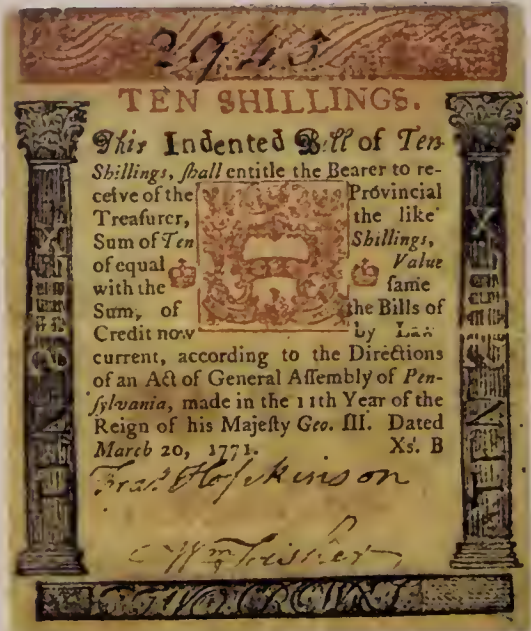 2945
TEN SHILLINGS.
This Indented Bill of Ten
Shillings, ſhall entitle the Bearer to re-
ceive of the Provincial
Treaſurer, the like
Sum of Ten Shillings,
of equal Value
with the ſame
Sum, of the Bills of
Credit now by Law
current, according to the Directions
of an Act of General Aſſembly of Pen-
ſylvania, made in the 11th Year of the
Reign of his Majeſty Geo. III. Dated
March 20, 1771. Xs. B
Fras. Hopkinson
Wm Fisher